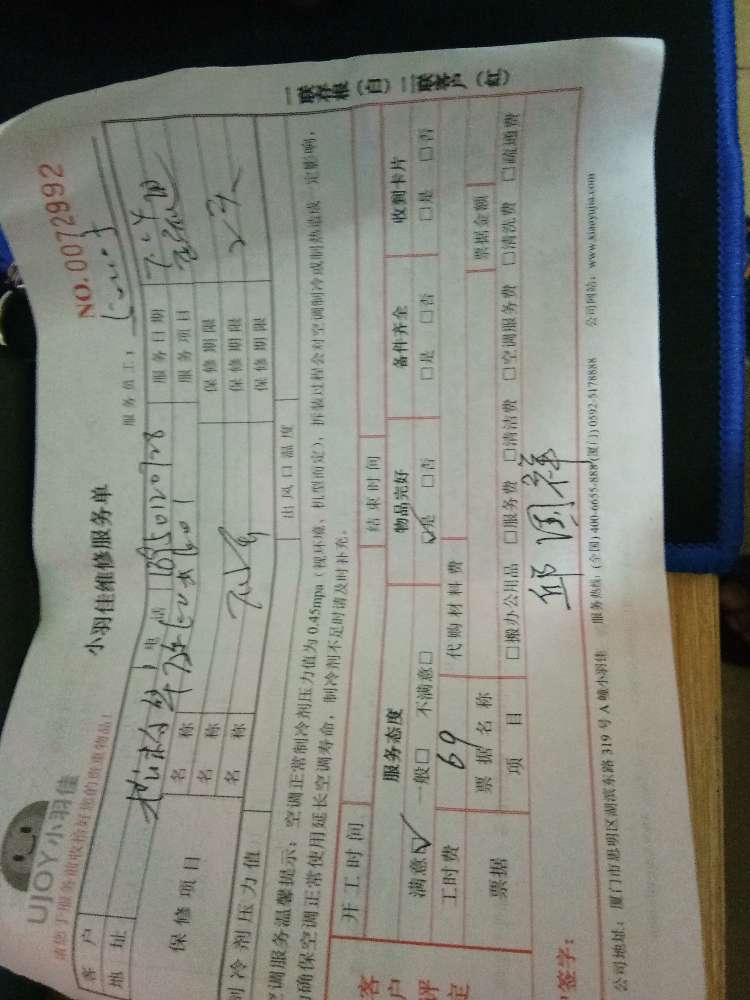 UJOY小羽佳
小羽佳维修服务单
NO. 0072992
请您于服务前收拾好您的贵重物品!
服务员工:
客户 电话 服务日期
地址 服务项目
保修项目 名称 保修期限
名称 保修期限
名称 保修期限
制冷剂压力值 出风口温度
空调服务温馨提示: 空调正常制冷剂压力值为 0.45mpa (视环境、机型而定), 拆装过程会对空调制冷或制热造成一定影响,
为确保空调正常使用延长空调寿命, 制冷剂不足时请及时补充。
开工时间 结束时间
客户评定 服务态度 物品完好 备件齐全 收到卡片
满意☑ 一般□ 不满意□ ☑是 □否 □是 □否 □是 □否
工时费 69 代购材料费
票据 票据名称 票据金额
项目 □搬办公用品 □服务费 □清洁费 □空调服务费 □清洗费 □疏通费
签字: 邱国祥
公司地址: 厦门市思明区湖滨东路 319 号 A 幢小羽佳 服务热线: (全国) 400-6655-888 (厦门) 0592-5178888 公司网站: www.xiaoyujia.com
一联存根(白) 二联客户(红)